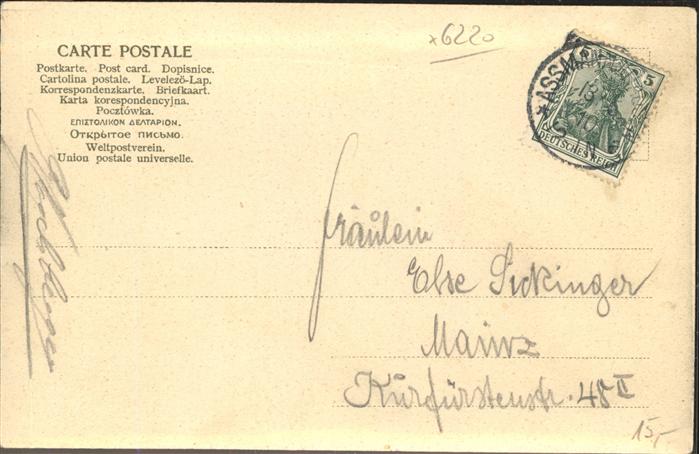 x6220
CARTE POSTALE
Postkarte. Post card. Dopisnice.
Cartolina postale. Levelező-Lap.
Korrespondenzkarte. Briefkaart.
Karta korespondencyjna.
Pocztówka.
ΕΠΙΣΤΟΛΙΚΟΝ ΔΕΛΤΑΡΙΟΝ.
Открытое письмо.
Weltpostverein.
Union postale universelle.
5
DEUTSCHES REICH
Fräulein
Else Sickinger
Mainz
Kurfürstenstr. 48 II
15,-